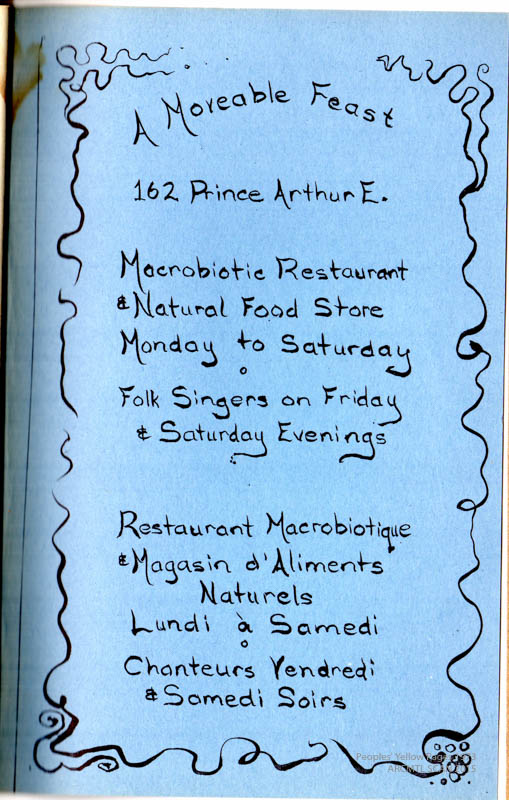 A Moveable Feast
162 Prince Arthur E.
Macrobiotic Restaurant
& Natural Food Store
Monday to Saturday
Folk Singers on Friday
& Saturday Evenings
Restaurant Macrobiotique
& Magasin d'Aliments
Naturels
Lundi à Samedi
Chanteurs Vendredi
& Samedi Soirs
Peoples' Yellow